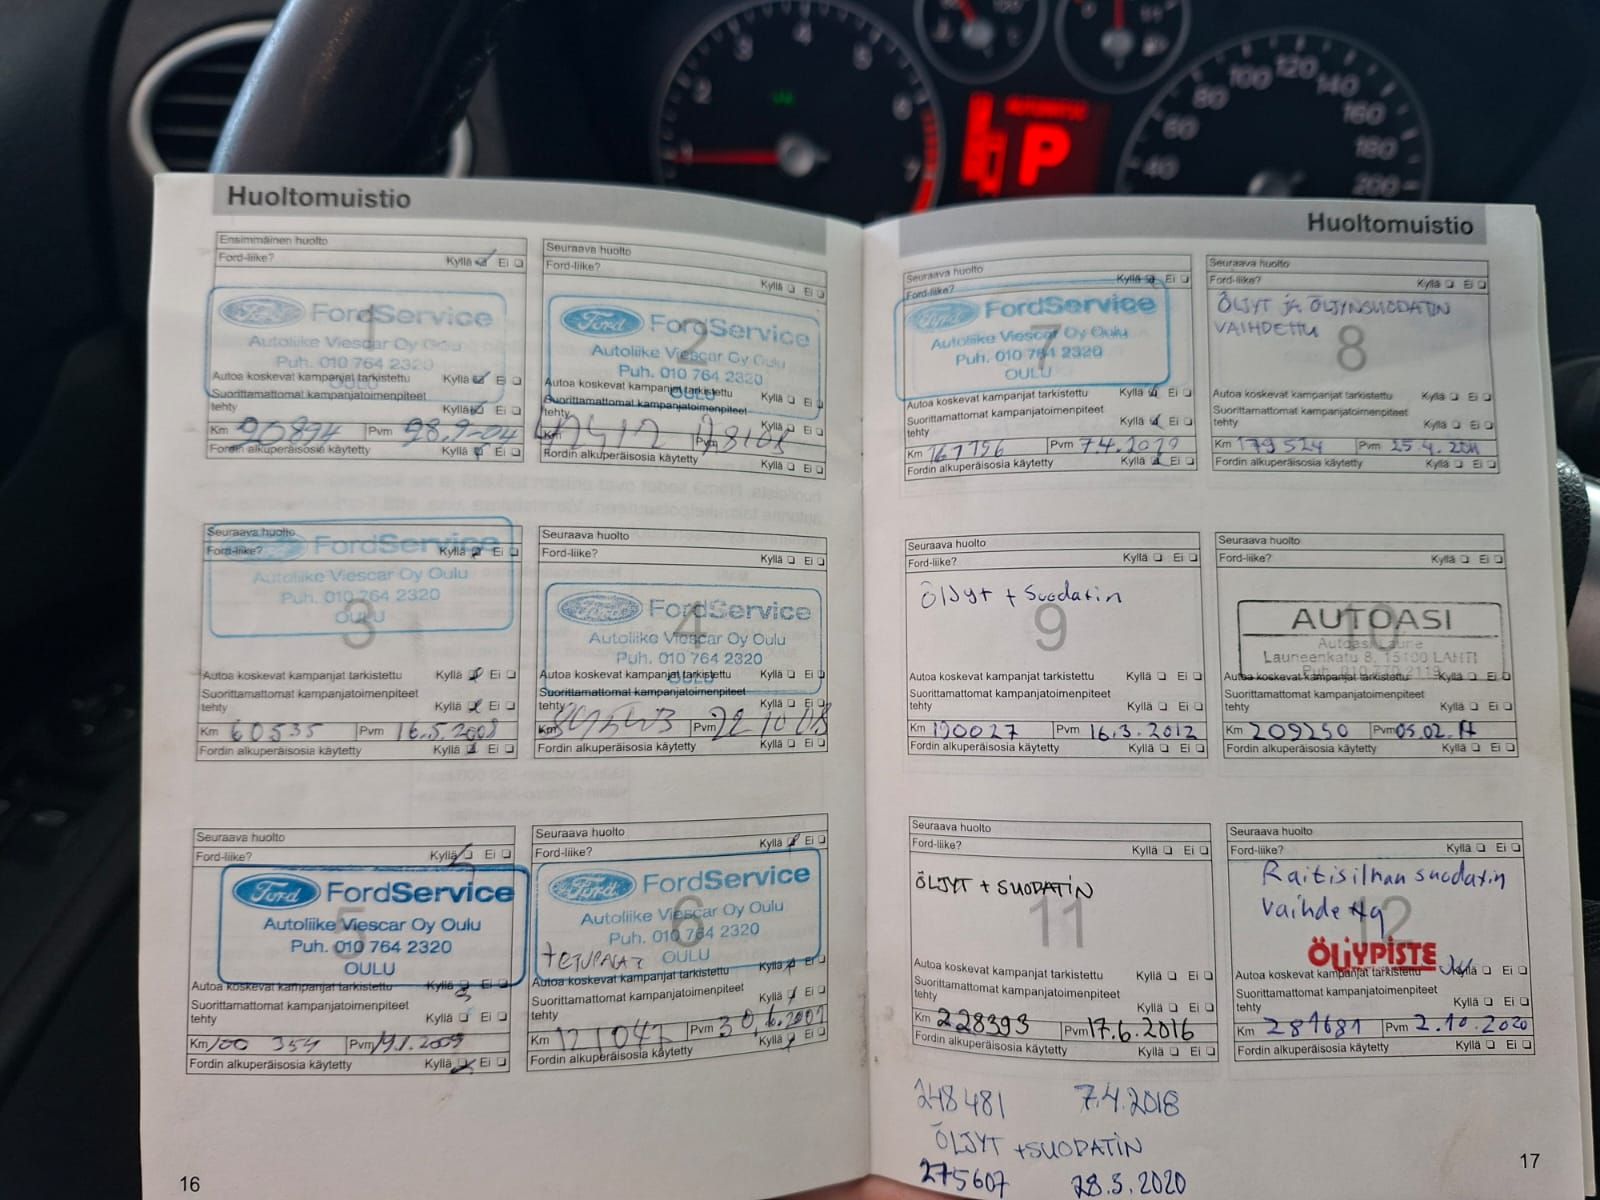 2
3
4
5
6
7
P
40
60
80
100
120
140
160
180
200
Huoltomuistio
Ensimmäinen huolto
Ford-liike? Kyllä Ei
1
Ford FordService
Autoliike Viescar Oy Oulu
Puh. 010 764 2320
OULU
Autoa koskevat kampanjat tarkistettu Kyllä Ei
Suorittamattomat kampanjatoimenpiteet
tehty Kyllä Ei
Km 20894 Pvm
Fordin alkuperäisosia käytetty Kyllä Ei
Seuraava huolto
Ford-liike? Kyllä Ei
2
Ford FordService
Autoliike Viescar Oy Oulu
Puh. 010 764 2320
OULU
Autoa koskevat kampanjat tarkistettu Kyllä Ei
Suorittamattomat kampanjatoimenpiteet
tehty Kyllä Ei
Km Pvm
Fordin alkuperäisosia käytetty Kyllä Ei
Seuraava huolto
Ford-liike? Kyllä Ei
3
FordService
Autoliike Viescar Oy Oulu
Puh. 010 764 2320
OULU
Autoa koskevat kampanjat tarkistettu Kyllä Ei
Suorittamattomat kampanjatoimenpiteet
tehty Kyllä Ei
Km 60535 Pvm 16.5.2008
Fordin alkuperäisosia käytetty Kyllä Ei
Seuraava huolto
Ford-liike? Kyllä Ei
4
Ford FordService
Autoliike Viescar Oy Oulu
Puh. 010 764 2320
OULU
Autoa koskevat kampanjat tarkistettu Kyllä Ei
Suorittamattomat kampanjatoimenpiteet
tehty Kyllä Ei
Km Pvm 22 10 08
Fordin alkuperäisosia käytetty Kyllä Ei
Seuraava huolto
Ford-liike? Kyllä Ei
5
Ford FordService
Autoliike Viescar Oy Oulu
Puh. 010 764 2320
OULU
Autoa koskevat kampanjat tarkistettu Kyllä Ei
Suorittamattomat kampanjatoimenpiteet
tehty Kyllä Ei
Km 100 354 Pvm
Fordin alkuperäisosia käytetty Kyllä Ei
Seuraava huolto
Ford-liike? Kyllä Ei
6
Ford FordService
Autoliike Viescar Oy Oulu
Puh. 010 764 2320
OULU
Autoa koskevat kampanjat tarkistettu Kyllä Ei
Suorittamattomat kampanjatoimenpiteet
tehty Kyllä Ei
Km 121047 Pvm 30.6.2009
Fordin alkuperäisosia käytetty Kyllä Ei
16
Huoltomuistio
Seuraava huolto
Ford-liike? Kyllä Ei
7
Ford FordService
Autoliike Viescar Oy Oulu
Puh. 010 764 2320
OULU
Autoa koskevat kampanjat tarkistettu Kyllä Ei
Suorittamattomat kampanjatoimenpiteet
tehty Kyllä Ei
Km Pvm
Fordin alkuperäisosia käytetty Kyllä Ei
Seuraava huolto
Ford-liike? Kyllä Ei
ÖLJYT JA ÖLJYNSUODATIN
VAIHDETTU
8
Autoa koskevat kampanjat tarkistettu Kyllä Ei
Suorittamattomat kampanjatoimenpiteet
tehty Kyllä Ei
Km 179524 Pvm 25.4.2011
Fordin alkuperäisosia käytetty Kyllä Ei
Seuraava huolto
Ford-liike? Kyllä Ei
Öljyt + Suodatin
9
Autoa koskevat kampanjat tarkistettu Kyllä Ei
Suorittamattomat kampanjatoimenpiteet
tehty Kyllä Ei
Km 190027 Pvm 16.3.2012
Fordin alkuperäisosia käytetty Kyllä Ei
Seuraava huolto
Ford-liike? Kyllä Ei
10
AUTOASI
Autoasi Laune
Launeenkatu 8, 15100 LAHTI
Puh. 010 770 2119
Autoa koskevat kampanjat tarkistettu Kyllä Ei
Suorittamattomat kampanjatoimenpiteet
tehty Kyllä Ei
Km 209250 Pvm
Fordin alkuperäisosia käytetty Kyllä Ei
Seuraava huolto
Ford-liike? Kyllä Ei
ÖLJYT + SUODATIN
11
Autoa koskevat kampanjat tarkistettu Kyllä Ei
Suorittamattomat kampanjatoimenpiteet
tehty Kyllä Ei
Km 228393 Pvm 17.6.2016
Fordin alkuperäisosia käytetty Kyllä Ei
Seuraava huolto
Ford-liike? Kyllä Ei
Raitisilman suodatin
12
ÖLJYPISTE
Autoa koskevat kampanjat tarkistettu Kyllä Ei
Suorittamattomat kampanjatoimenpiteet
tehty Kyllä Ei
Km 281681 Pvm 2.10.2020
Fordin alkuperäisosia käytetty Kyllä Ei
248481 7.4.2018
ÖLJYT +SUODATIN
275607 28.5.2020
17